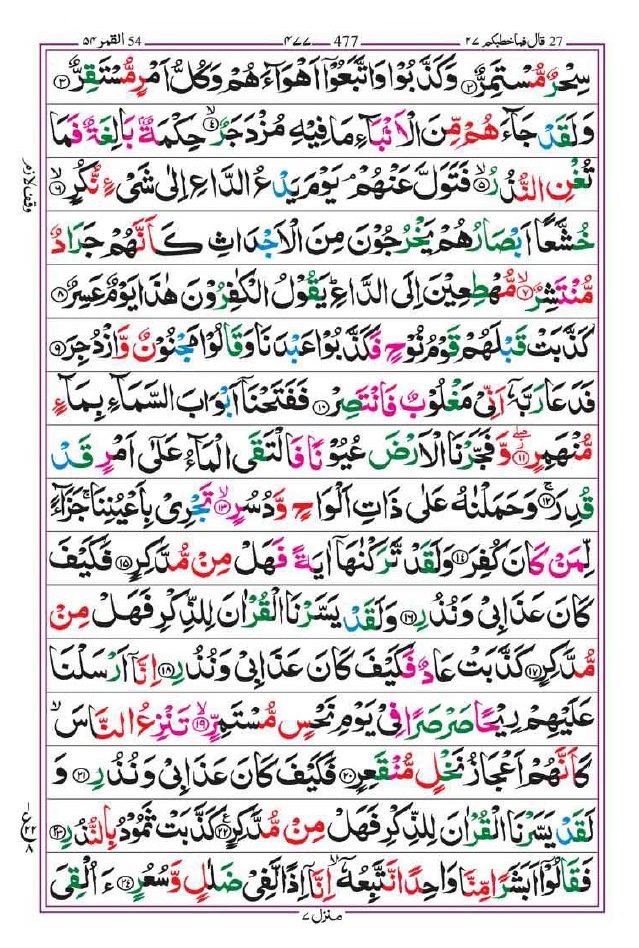 ٥٤ القمر 54 ٤٧٧ 477 قال فما خطبكم ٢٧ 27
سِحْرٌ مُّسْتَمِرٌّ ﴿۲﴾ وَكَذَّبُوْا وَاتَّبَعُوْۤا اَهْوَآءَهُمْ وَكُلُّ اَمْرٍ مُّسْتَقِرٌّ ﴿۳﴾
وَلَقَدْ جَآءَهُمْ مِّنَ الْاَنْۢبَآءِ مَا فِيْهِ مُزْدَجَرٌ ۙ﴿۴﴾ حِكْمَةٌۢ بَالِغَةٌ فَمَا
تُغْنِ النُّذُرُ ۙ﴿۵﴾ فَتَوَلَّ عَنْهُمْ ۘ يَوْمَ يَدْعُ الدَّاعِ اِلٰى شَىْءٍ نُّكُرٍ ۙ﴿۶﴾
وقف لازم
خُشَّعًا اَبْصَارُهُمْ يَخْرُجُوْنَ مِنَ الْاَجْدَاثِ كَاَنَّهُمْ جَرَادٌ
مُّنْتَشِرٌ ۙ﴿۷﴾ مُّهْطِعِيْنَ اِلَى الدَّاعِ ؕ يَقُوْلُ الْكٰفِرُوْنَ هٰذَا يَوْمٌ عَسِرٌ ﴿۸﴾
كَذَّبَتْ قَبْلَهُمْ قَوْمُ نُوْحٍ فَكَذَّبُوْا عَبْدَنَا وَقَالُوْا مَجْنُوْنٌ وَّازْدُجِرَ ﴿۹﴾
فَدَعَا رَبَّهٗۤ اَنِّىْ مَغْلُوْبٌ فَانْتَصِرْ ﴿۱۰﴾ فَفَتَحْنَاۤ اَبْوَابَ السَّمَآءِ بِمَآءٍ
مُّنْهَمِرٍ ۖ﴿۱۱﴾ وَّفَجَّرْنَا الْاَرْضَ عُيُوْنًا فَالْتَقَى الْمَآءُ عَلٰٓى اَمْرٍ قَدْ
قُدِرَ ۚ﴿۱۲﴾ وَحَمَلْنٰهُ عَلٰى ذَاتِ اَلْوَاحٍ وَّدُسُرٍ ۙ﴿۱۳﴾ تَجْرِىْ بِاَعْيُنِنَا ۚ جَزَآءً
لِّمَنْ كَانَ كُفِرَ ﴿۱۴﴾ وَلَقَدْ تَّرَكْنٰهَاۤ اٰيَةً فَهَلْ مِنْ مُّدَّكِرٍ ﴿۱۵﴾ فَكَيْفَ
كَانَ عَذَابِىْ وَنُذُرِ ﴿۱۶﴾ وَلَقَدْ يَسَّرْنَا الْقُرْاٰنَ لِلذِّكْرِ فَهَلْ مِنْ
مُّدَّكِرٍ ﴿۱۷﴾ كَذَّبَتْ عَادٌ فَكَيْفَ كَانَ عَذَابِىْ وَنُذُرِ ﴿۱۸﴾ اِنَّاۤ اَرْسَلْنَا
عَلَيْهِمْ رِيْحًا صَرْصَرًا فِىْ يَوْمِ نَحْسٍ مُّسْتَمِرٍّ ۙ﴿۱۹﴾ تَنْزِعُ النَّاسَ ۙ
كَاَنَّهُمْ اَعْجَازُ نَخْلٍ مُّنْقَعِرٍ ﴿۲۰﴾ فَكَيْفَ كَانَ عَذَابِىْ وَنُذُرِ ﴿۲۱﴾ وَ
لَقَدْ يَسَّرْنَا الْقُرْاٰنَ لِلذِّكْرِ فَهَلْ مِنْ مُّدَّكِرٍ ﴿۲۲﴾ كَذَّبَتْ ثَمُوْدُ بِالنُّذُرِ ﴿۲۳﴾
ع ۲۲ ۸
فَقَالُوْۤا اَبَشَرًا مِّنَّا وَاحِدًا نَّتَّبِعُهٗۤ ۙ اِنَّاۤ اِذًا لَّفِىْ ضَلٰلٍ وَّسُعُرٍ ﴿۲۴﴾ ءَاُلْقِىَ
منزل ۷